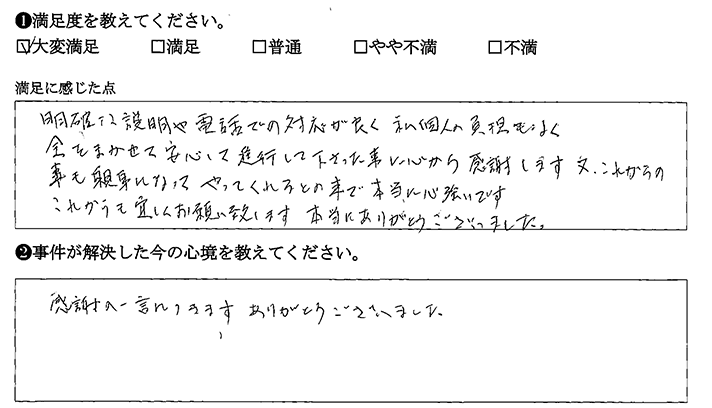 ❶満足度を教えてください。
☑大変満足 □満足 □普通 □やや不満 □不満
満足に感じた点
明確な説明や電話での対応が良く 私個人の負担もなく
全をまかせて安心して進行して下さった事に心から感謝します 又、これからの
事も親身になって やってくれるとの事で本当に心強いです
これからも宜しくお願い致します 本当にありがとうございました。
❷事件が解決した今の心境を教えてください。
感謝の一言につきます ありがとうございました